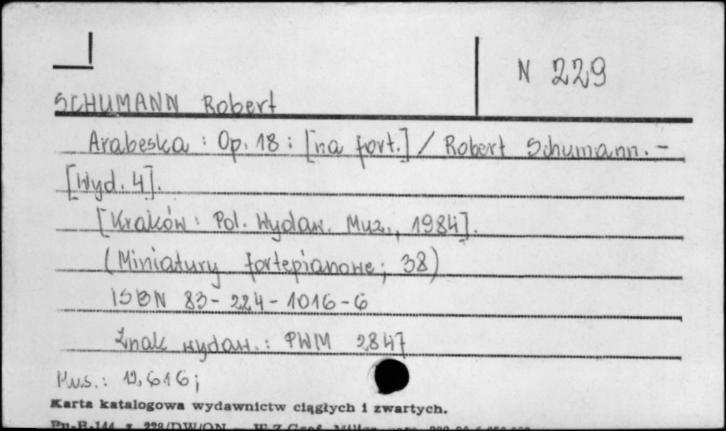 N 229
SCHUMANN Robert
Arabeska : Op. 18 : [na fort.] / Robert Schumann. -
[Wyd. 4].
[Kraków : Pol. Wydaw. Muz., 1984].
(Miniatury fortepianowe ; 38)
ISBN 83-224-1016-6
Znak wydaw.: PWM 2847
Mus.: 19,616;
Karta katalogowa wydawnictw ciągłych i zwartych.
Pu-B-144 z. 228/DW/ON — W-Z Graf.